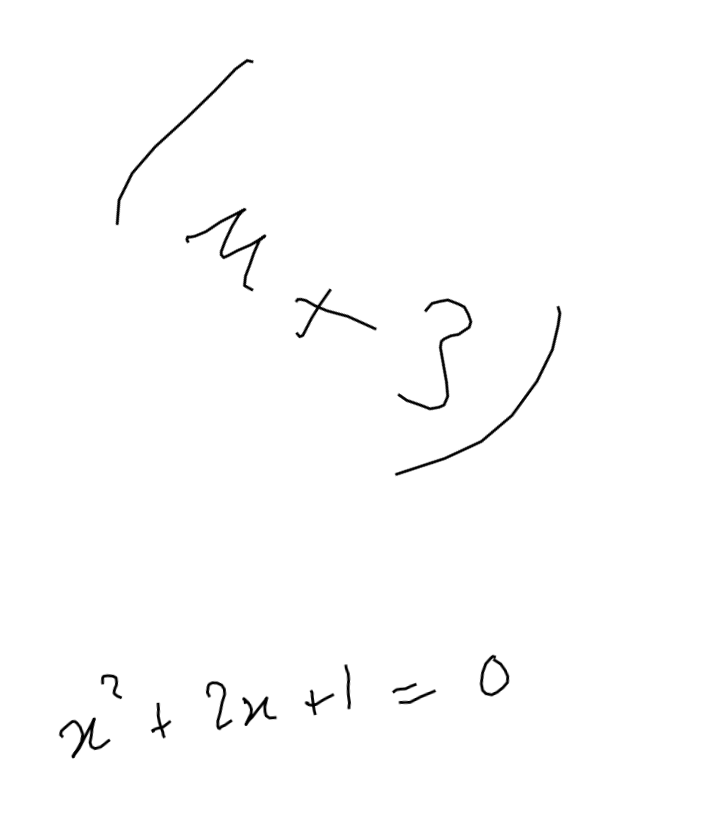 (x + 3)
x² + 2x + 1 = 0